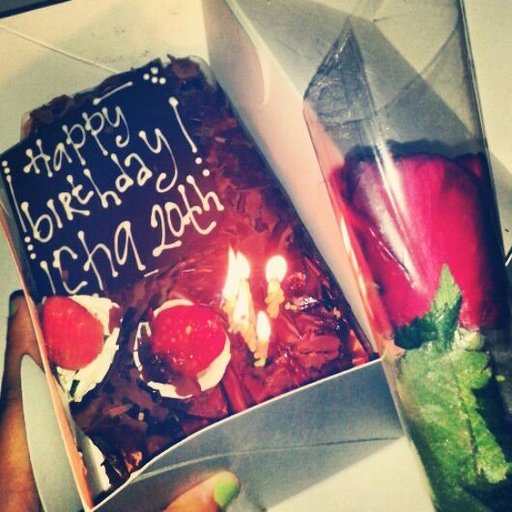 Happy
birthday!
Icha 20th!